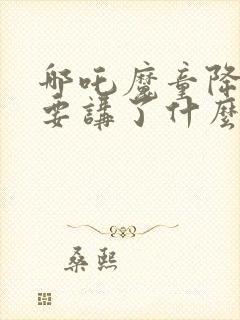 哪吒魔童降
要講了什麼
桑熙